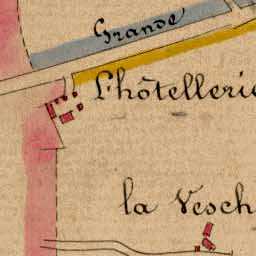 Grande
L'hôtellerie
la Vesch